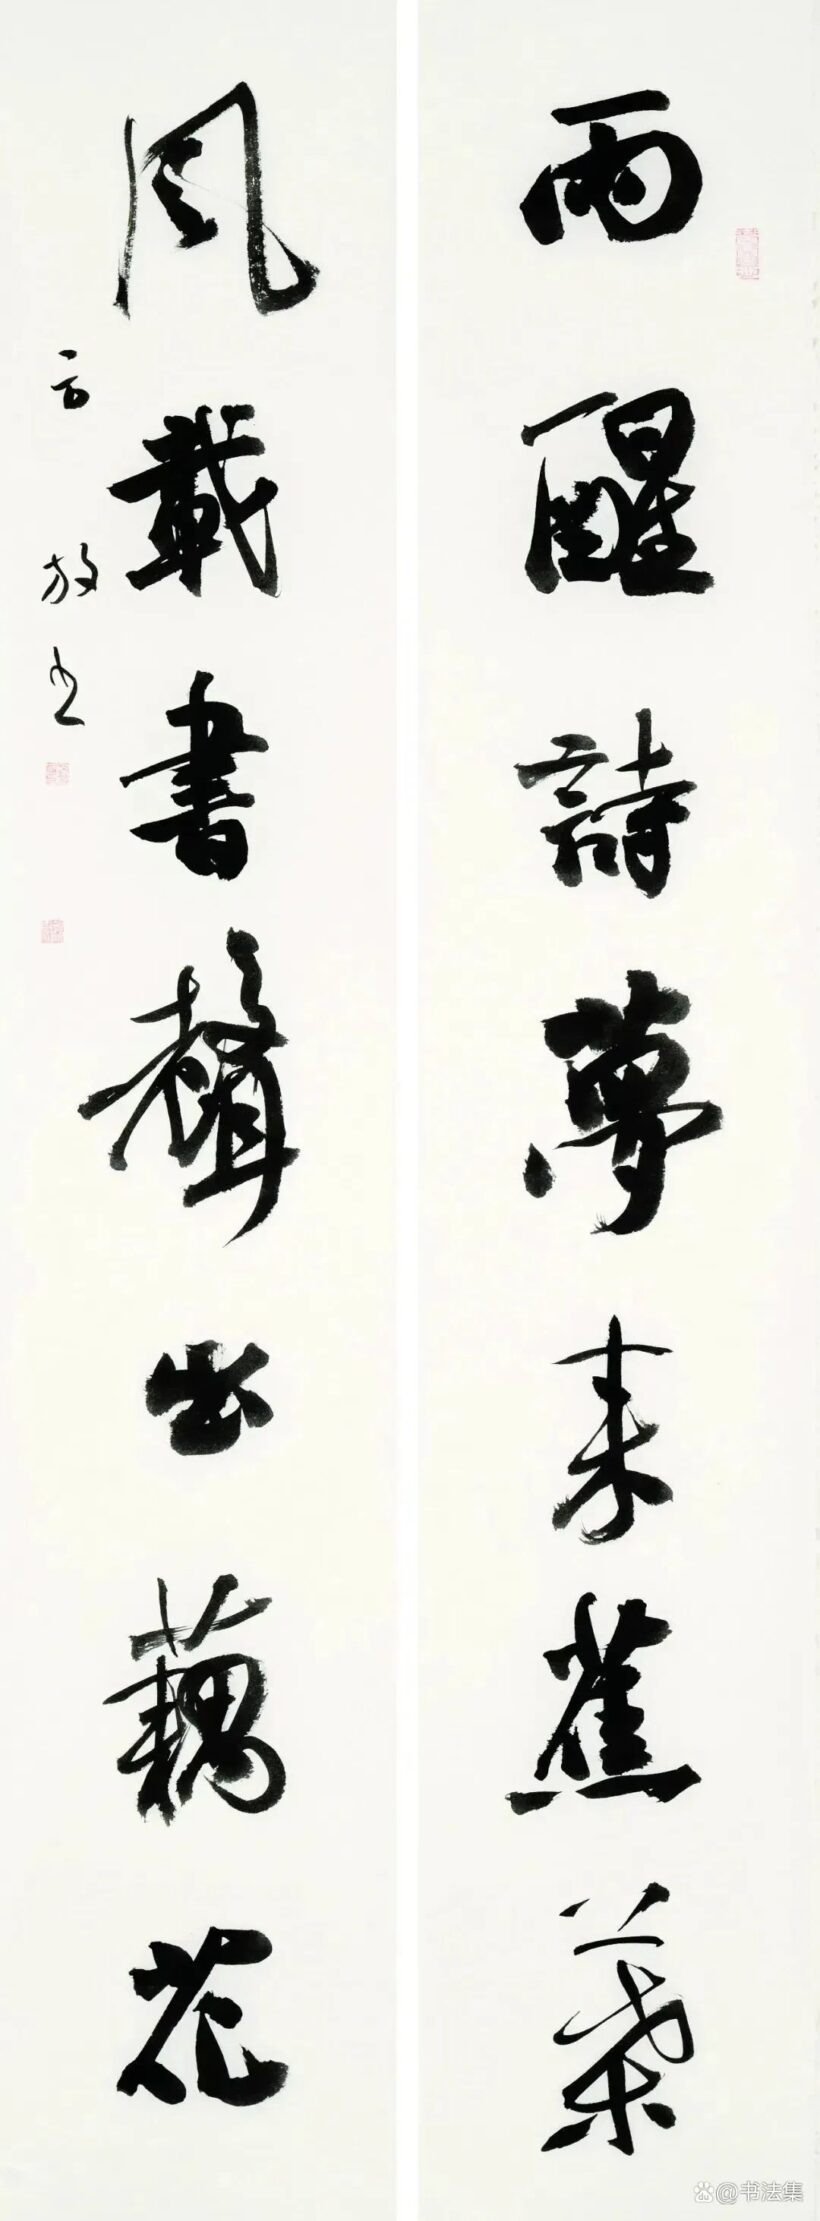 雨醒詩夢来蕉葉
風載書聲出藕花
放书
@书法集